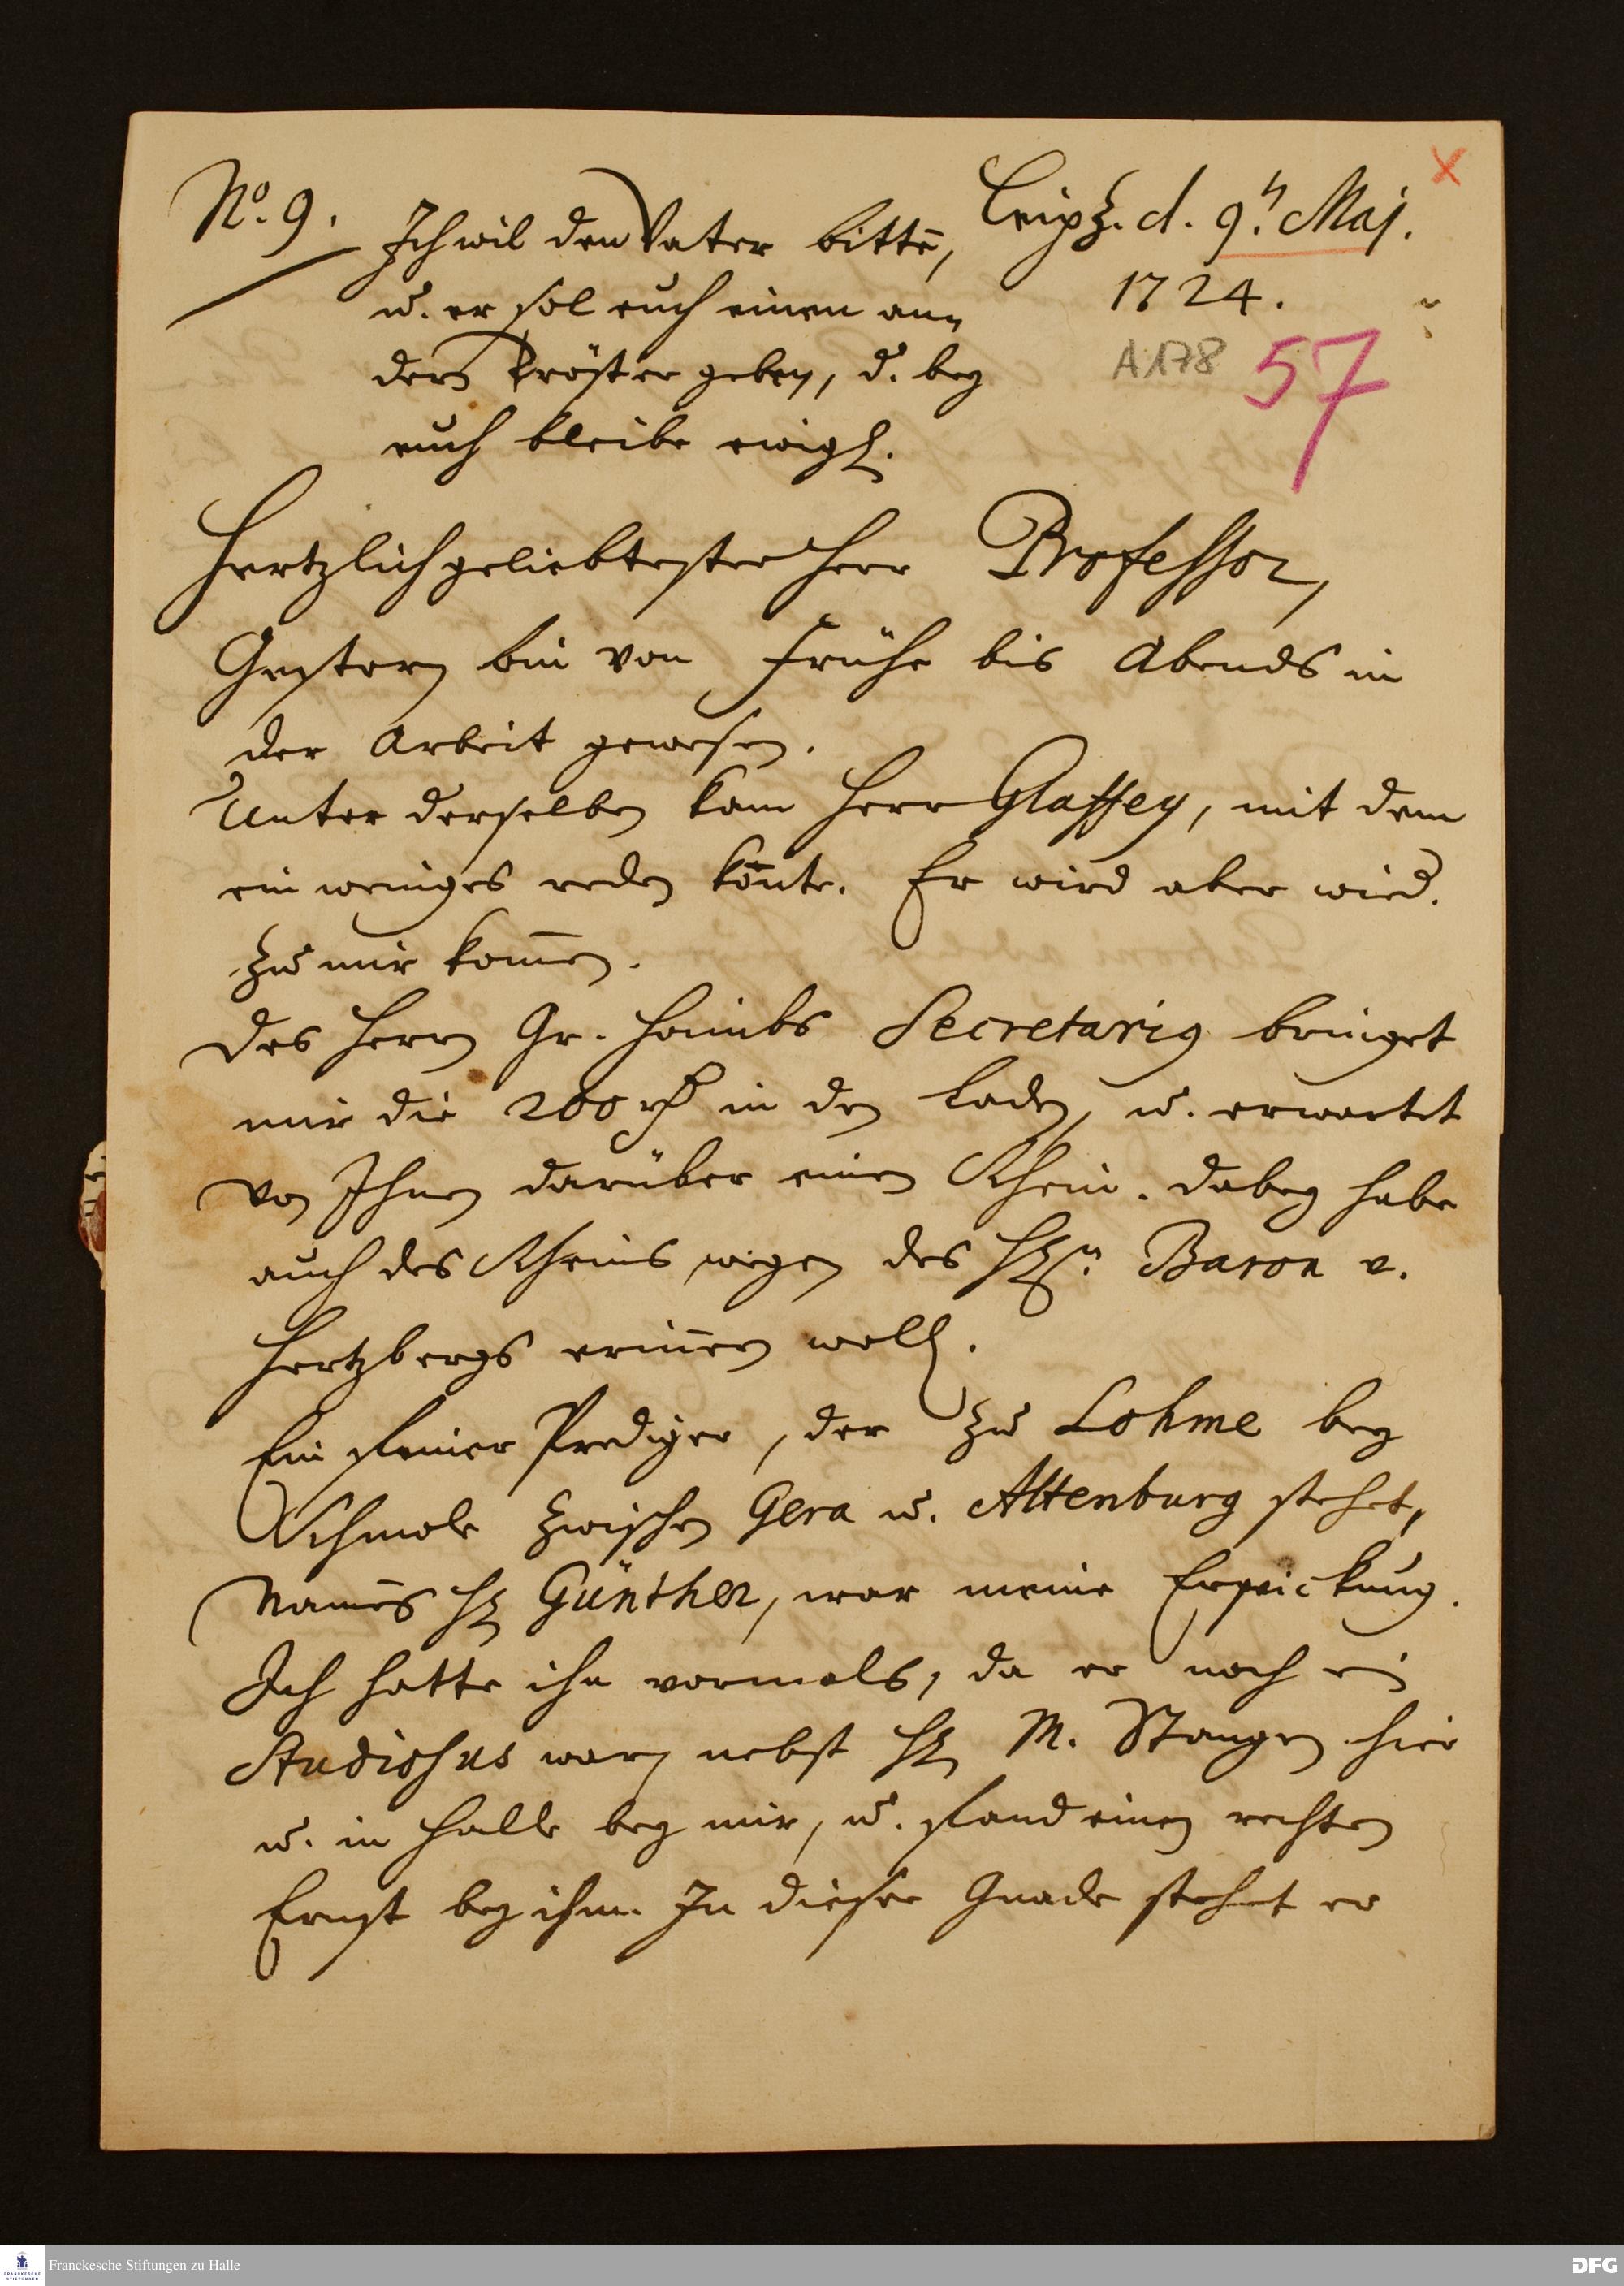 No. 9.
Leipz. d. 9.n Maj.
1724.
A 178
57
Ich wil den Vater bittē,
u. er sol euch einen an-
dern Tröster geben, d. bey
euch bleibe ewigl.
Hertzlichgeliebtester Herr Professor,
Gestern bin von Frühe bis Abends in
der Arbeit gewesen.
Unter derselben kam Herr Glaffey, mit dem
ein weniges reden kōnte. Er wird aber wied.
zu mir kom̄en.
Des Herrn Gr. Hoimbs Secretarig bringet
mir die 200 rthl in den Laden, u. erwartet
von Ihnen darüber einen Schein. Dabey habe
auch des Scheins wegen des H. Baron v.
Hertzbergs erin̄ern woll.
Ein feiner Prediger, der zu Lohme bey
Schmole zwischen Gera u. Altenburg stehet,
Namēs H. Günther, war meine Erqvickung.
Ich hatte ihn vormals, da er noch ein
Studiosus war, nebst H. M. Stangen hier
u. in Halle bey mir, u. fand einen rechten
Ernst bey ihm. In dieser Gnade stehet er
Franckesche Stiftungen zu Halle
DFG